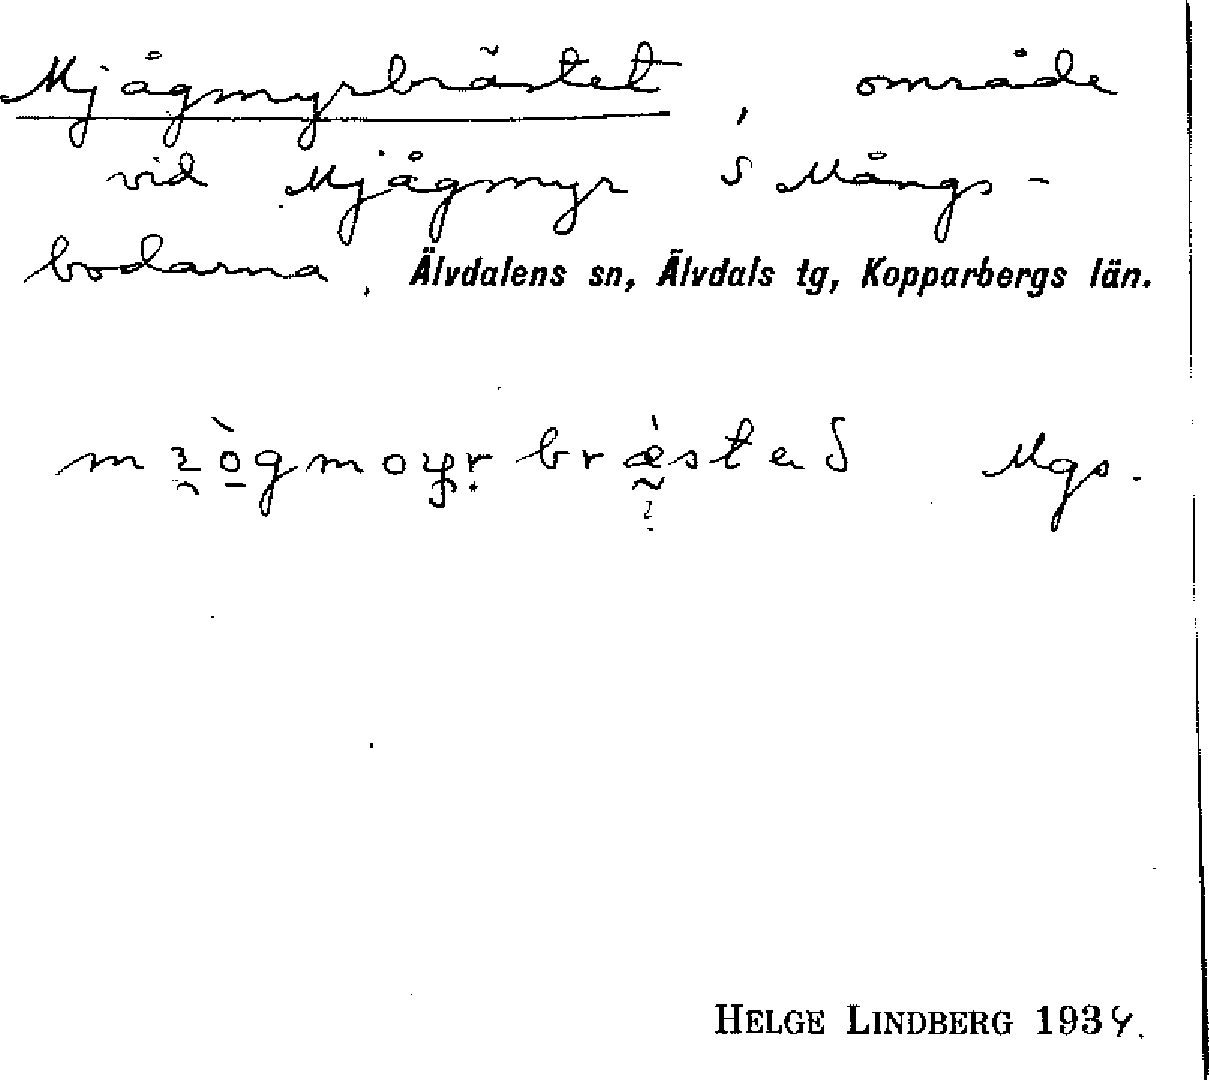 Mjågmyrbrästet, område
vid Mjågmyr S Mångs-
bodarna. Älvdalens sn, Älvdals tg, Kopparbergs län.
Mgs.
HELGE LINDBERG 1934.